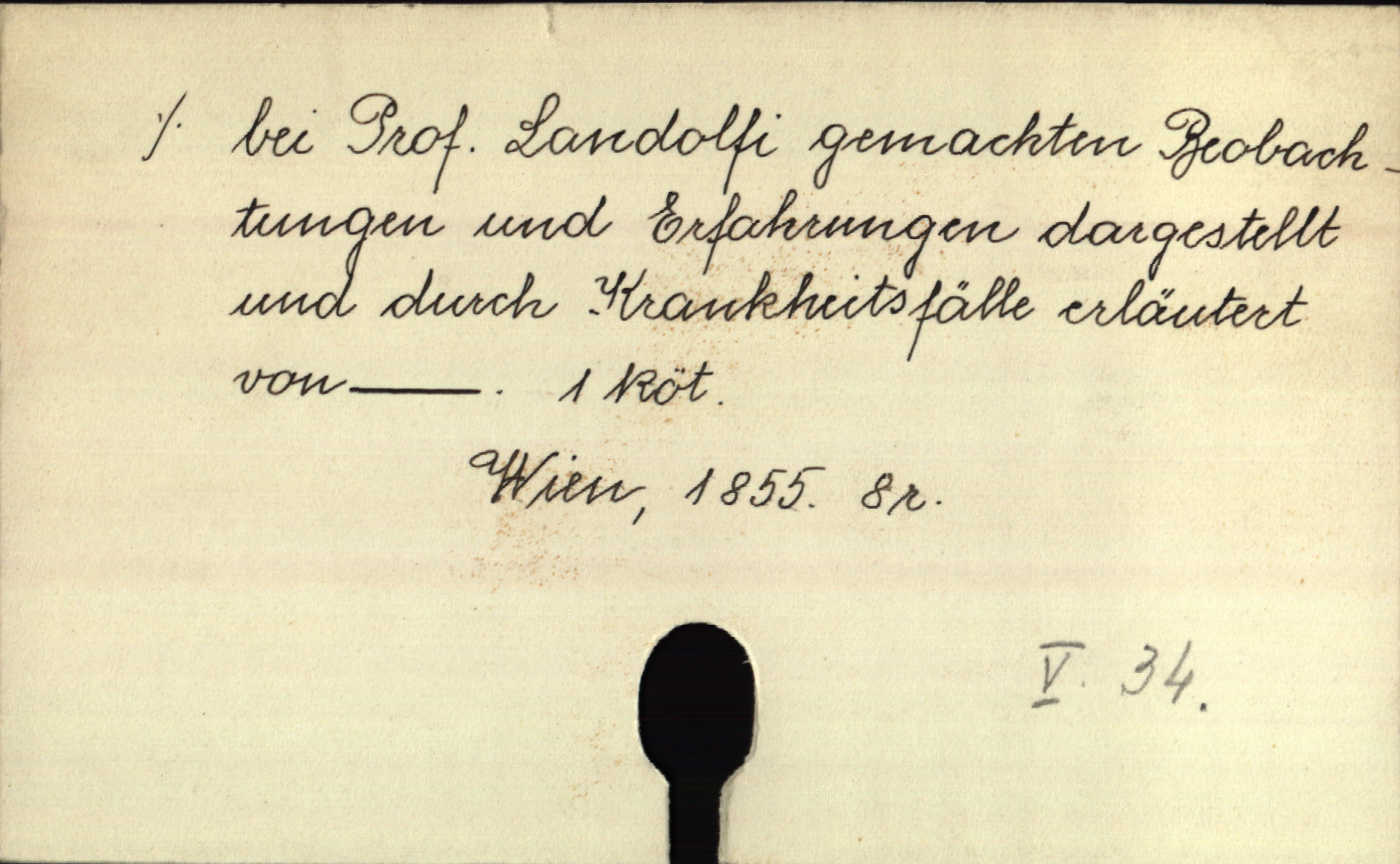 ·/. bei Prof. Landolfi gemachten Beobach-
tungen und Erfahrungen dargestellt
und durch Krankheitsfälle erläutert
von ——. 1 köt.
Wien, 1855. 8r.
V. 34.